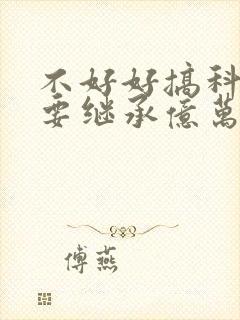 不好好搞科
要继承億萬
傅燕